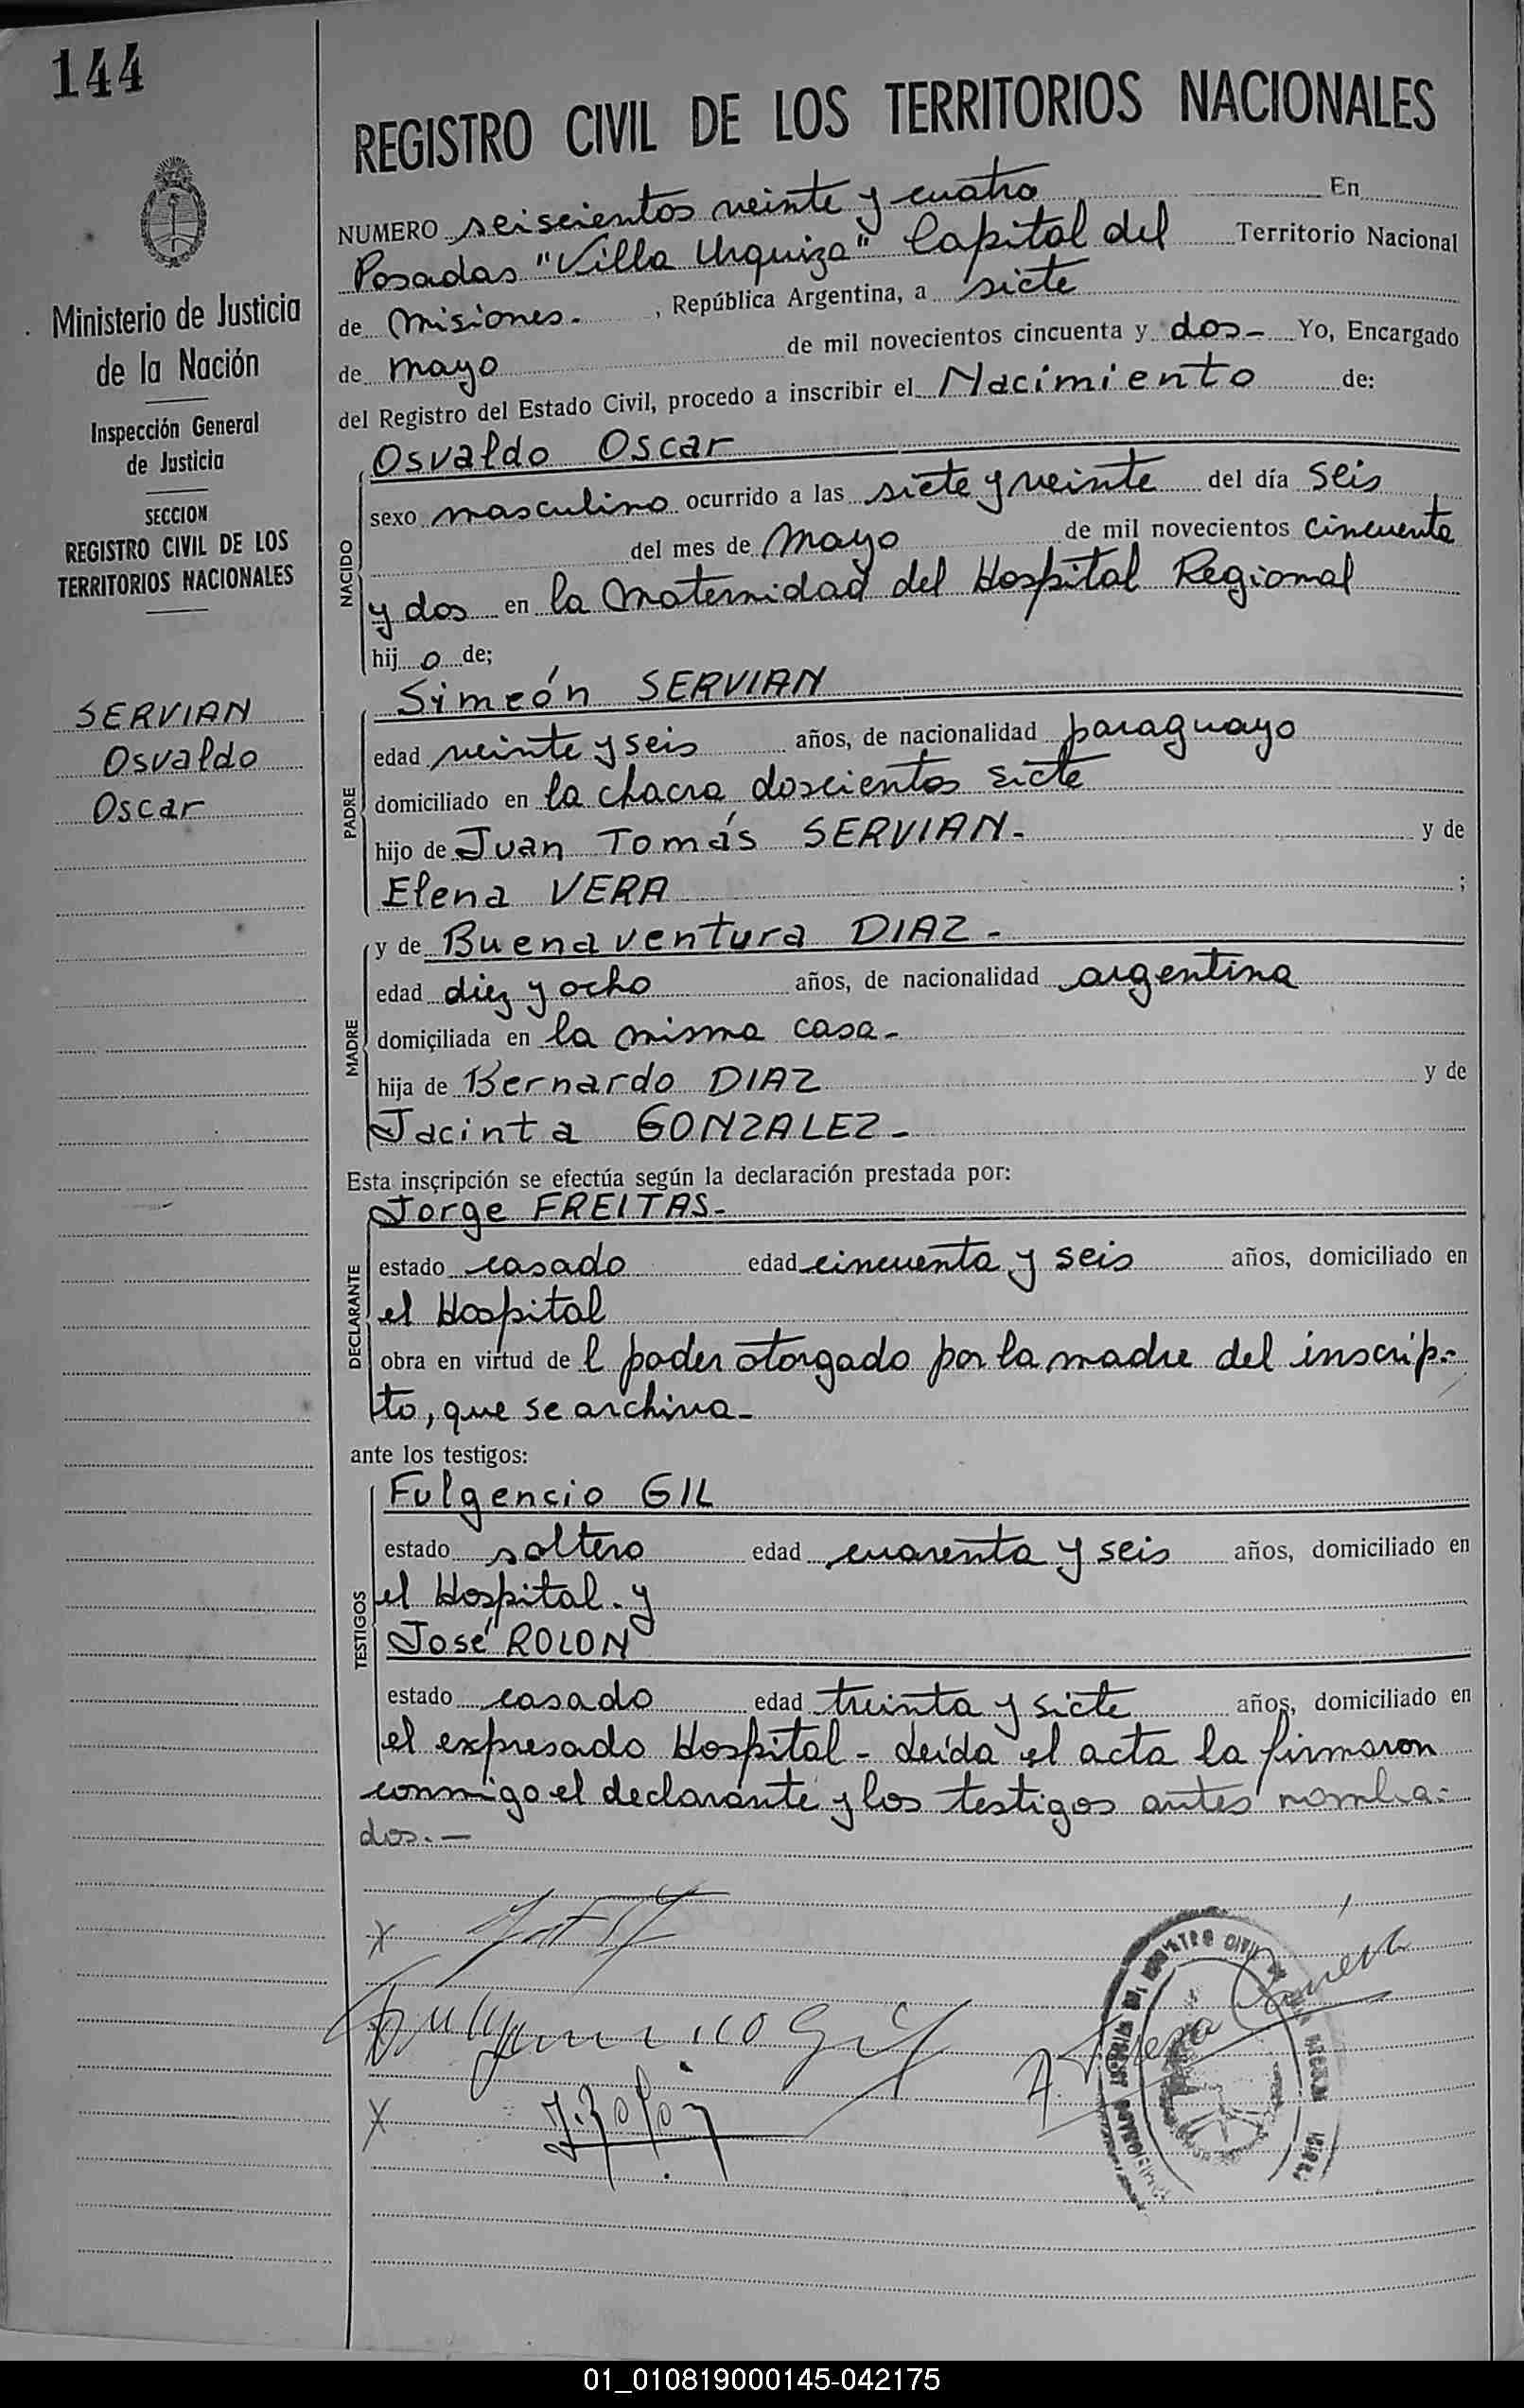 144
Ministerio de Justicia
de la Nación
Inspección General
de Justicia
SECCION
REGISTRO CIVIL DE LOS
TERRITORIOS NACIONALES
SERVIAN
Osvaldo
Oscar
REGISTRO CIVIL DE LOS TERRITORIOS NACIONALES
NUMERO seiscientos veinte y cuatro En
Posadas "Villa Urquiza" Capital del Territorio Nacional
de Misiones. , República Argentina, a siete
de mayo de mil novecientos cincuenta y dos - Yo, Encargado
del Registro del Estado Civil, procedo a inscribir el Nacimiento de:
NACIDO
Osvaldo Oscar
sexo masculino ocurrido a las siete y veinte del día seis
del mes de Mayo de mil novecientos cincuenta
y dos en la Maternidad del Hospital Regional
hij o de;
PADRE
Simeón SERVIAN
edad veinte y seis años, de nacionalidad paraguayo
domiciliado en la chacra doscientos siete
hijo de Juan Tomás SERVIAN. y de
Elena VERA ;
MADRE
y de Buenaventura DIAZ -
edad diez y ocho años, de nacionalidad argentina
domiciliada en la misma casa -
hija de Bernardo DIAZ y de
Jacinta GONZALEZ -
Esta inscripción se efectúa según la declaración prestada por:
DECLARANTE
Jorge FREITAS -
estado casado edad cincuenta y seis años, domiciliado en
el Hospital
obra en virtud de l poder otorgado por la madre del inscrip.-
to, que se archiva -
ante los testigos:
TESTIGOS
Fulgencio GIL
estado soltero edad cuarenta y seis años, domiciliado en
el Hospital. y
José ROLON
estado casado edad treinta y siete años, domiciliado en
el expresado Hospital - Leída el acta la firmaron
conmigo el declarante y los testigos antes nombra-
dos. -
X
Fulgencio Gil
X J. Rolon
01_010819000145-042175